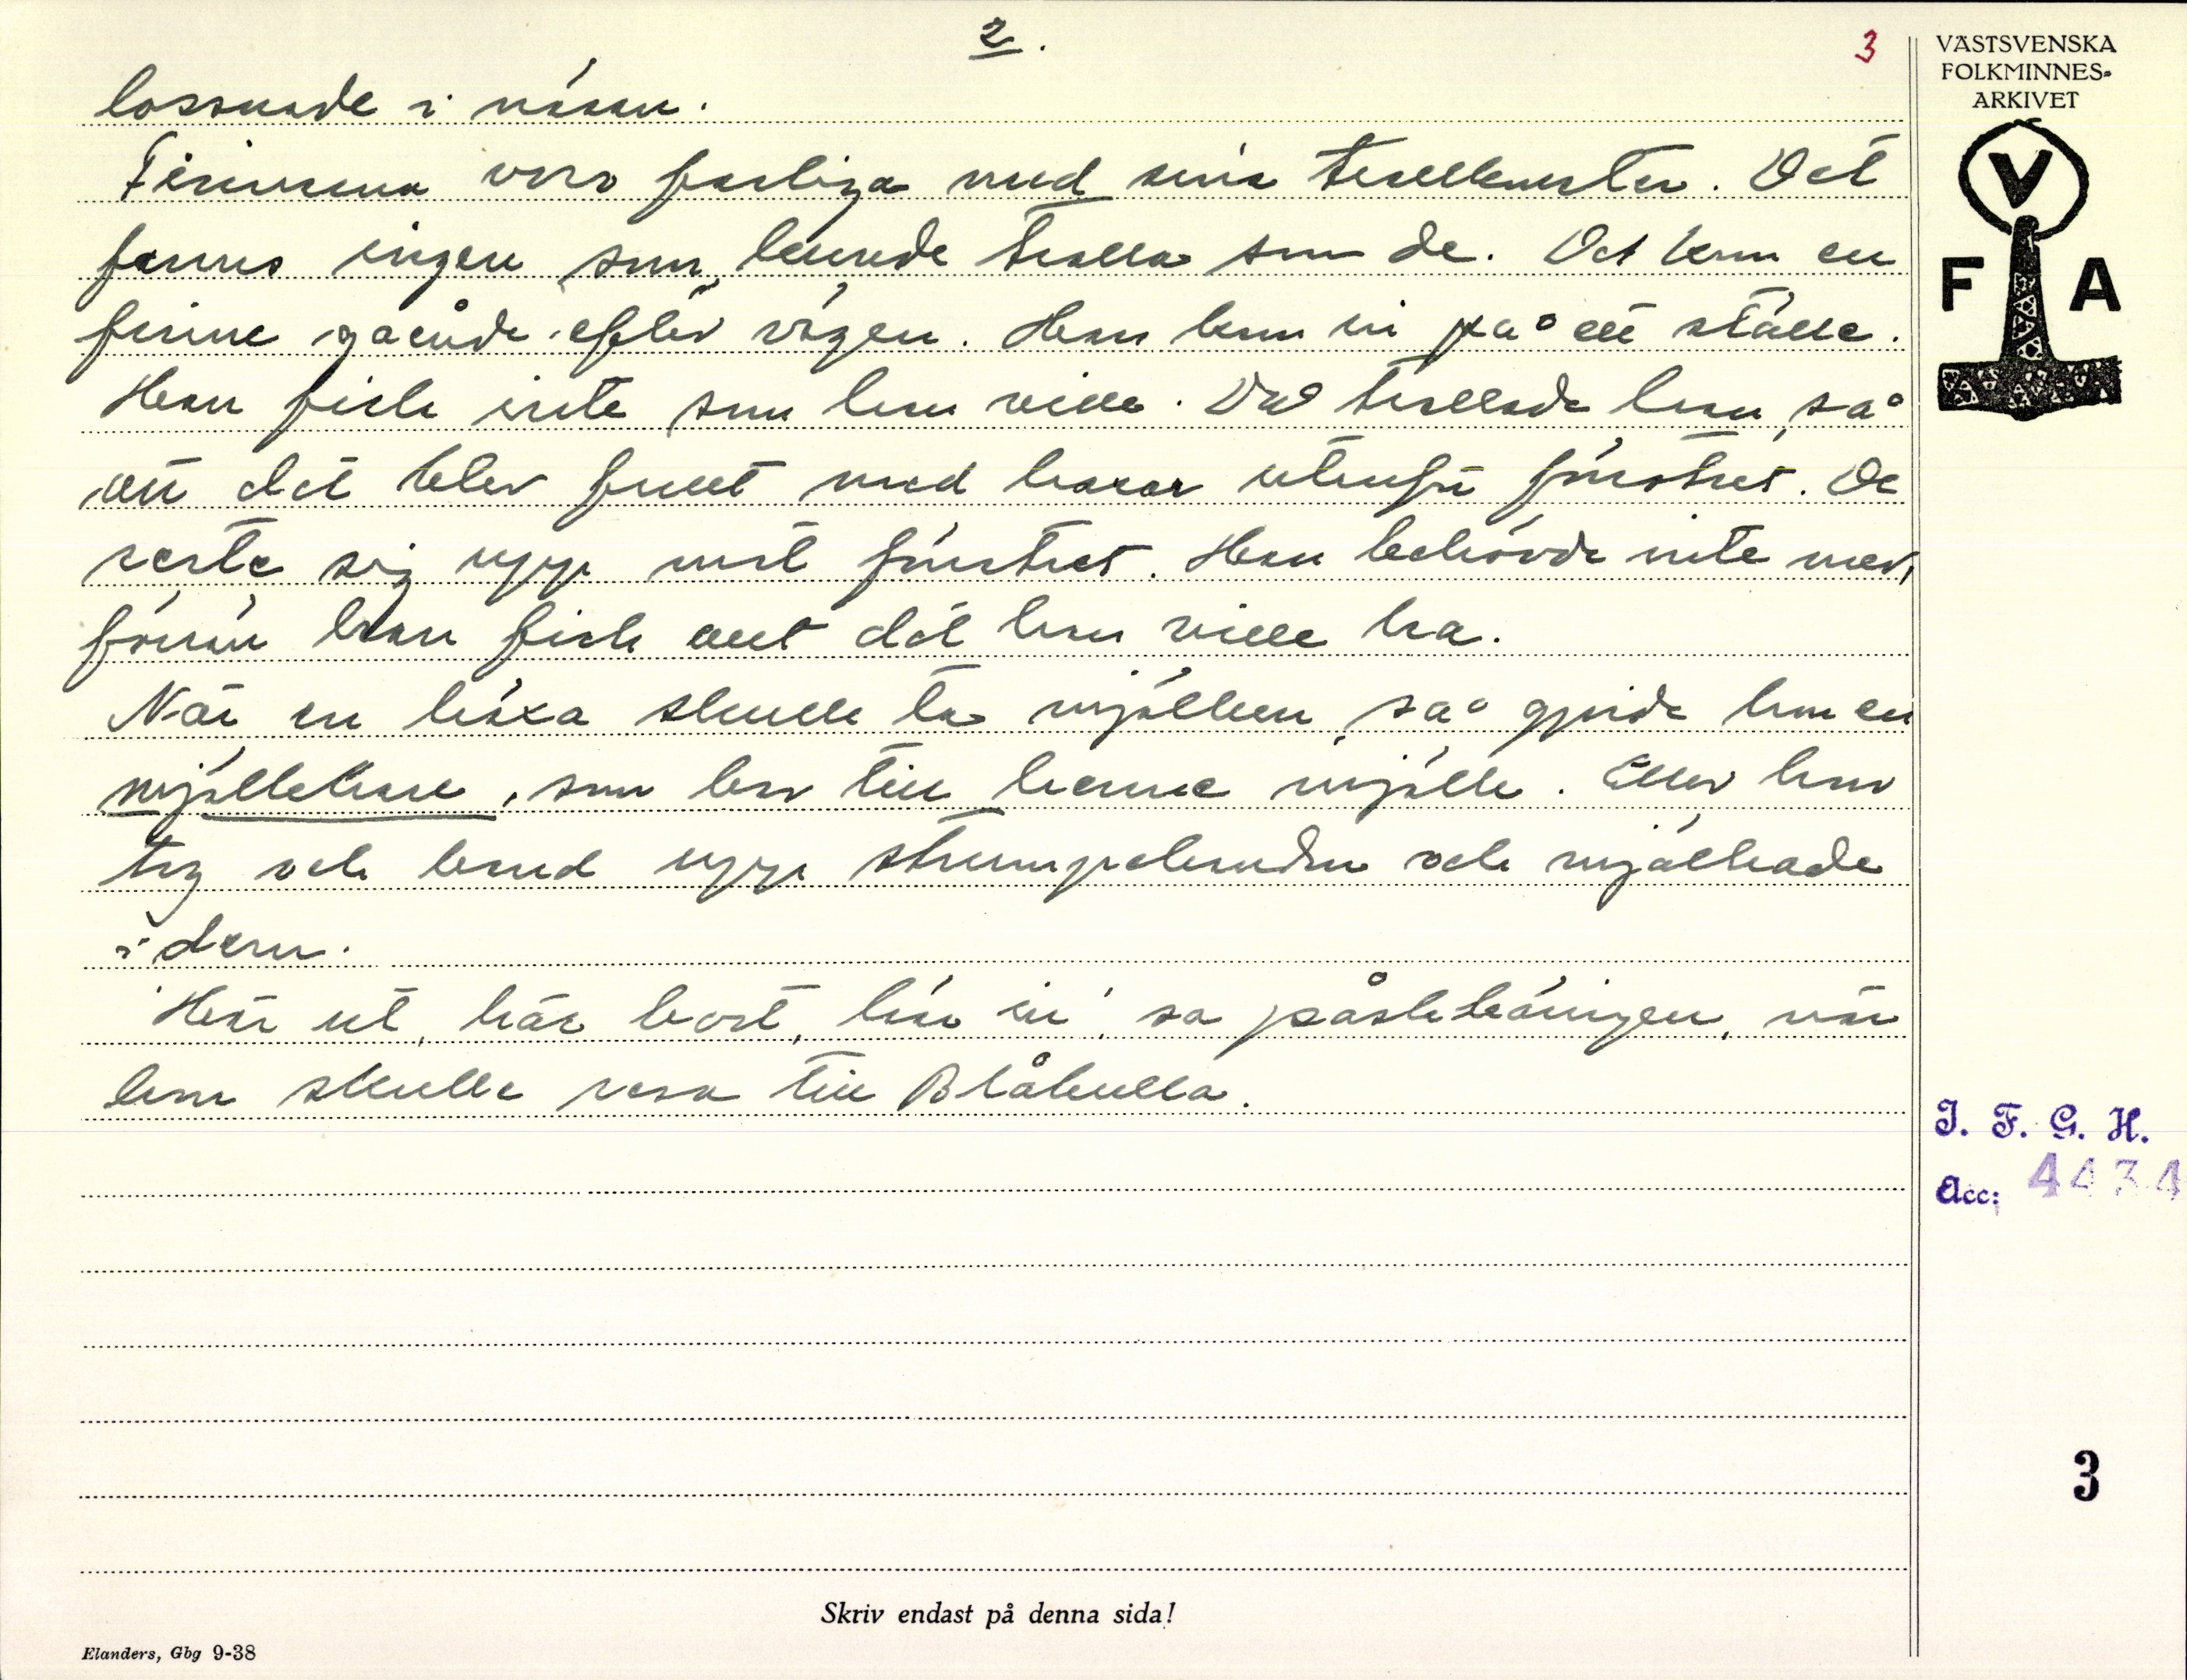 2.
3
lossnade i näsan.
Finnarna voro farliga med sina trollkonster. Det
fanns ingen som kunde trolla som de. Det kom en
finne gående efter vägen. Han kom in på ett ställe.
Han fick inte som han ville. Då trollade han, så
att det blev fullt med harar utanför fönstret. De
reste sig upp mot fönstret. Han behövde inte mer,
förrän han fick allt det han ville ha.
När en häxa skulle ta mjölken, så gjorde hon en
mjölkhare, som bar till henne mjölk. Eller hon
tog och band upp strumpebanden och mjölkade
i dem.
Här ut, här bort, hin in! sa påskkäringen, när
hon skulle resa till Blåkulla.
VÄSTSVENSKA
FOLKMINNES-
ARKIVET
V
F A
I. F. G. H.
Acc: 4434
3
Skriv endast på denna sida!
Elanders, Gbg 9-38